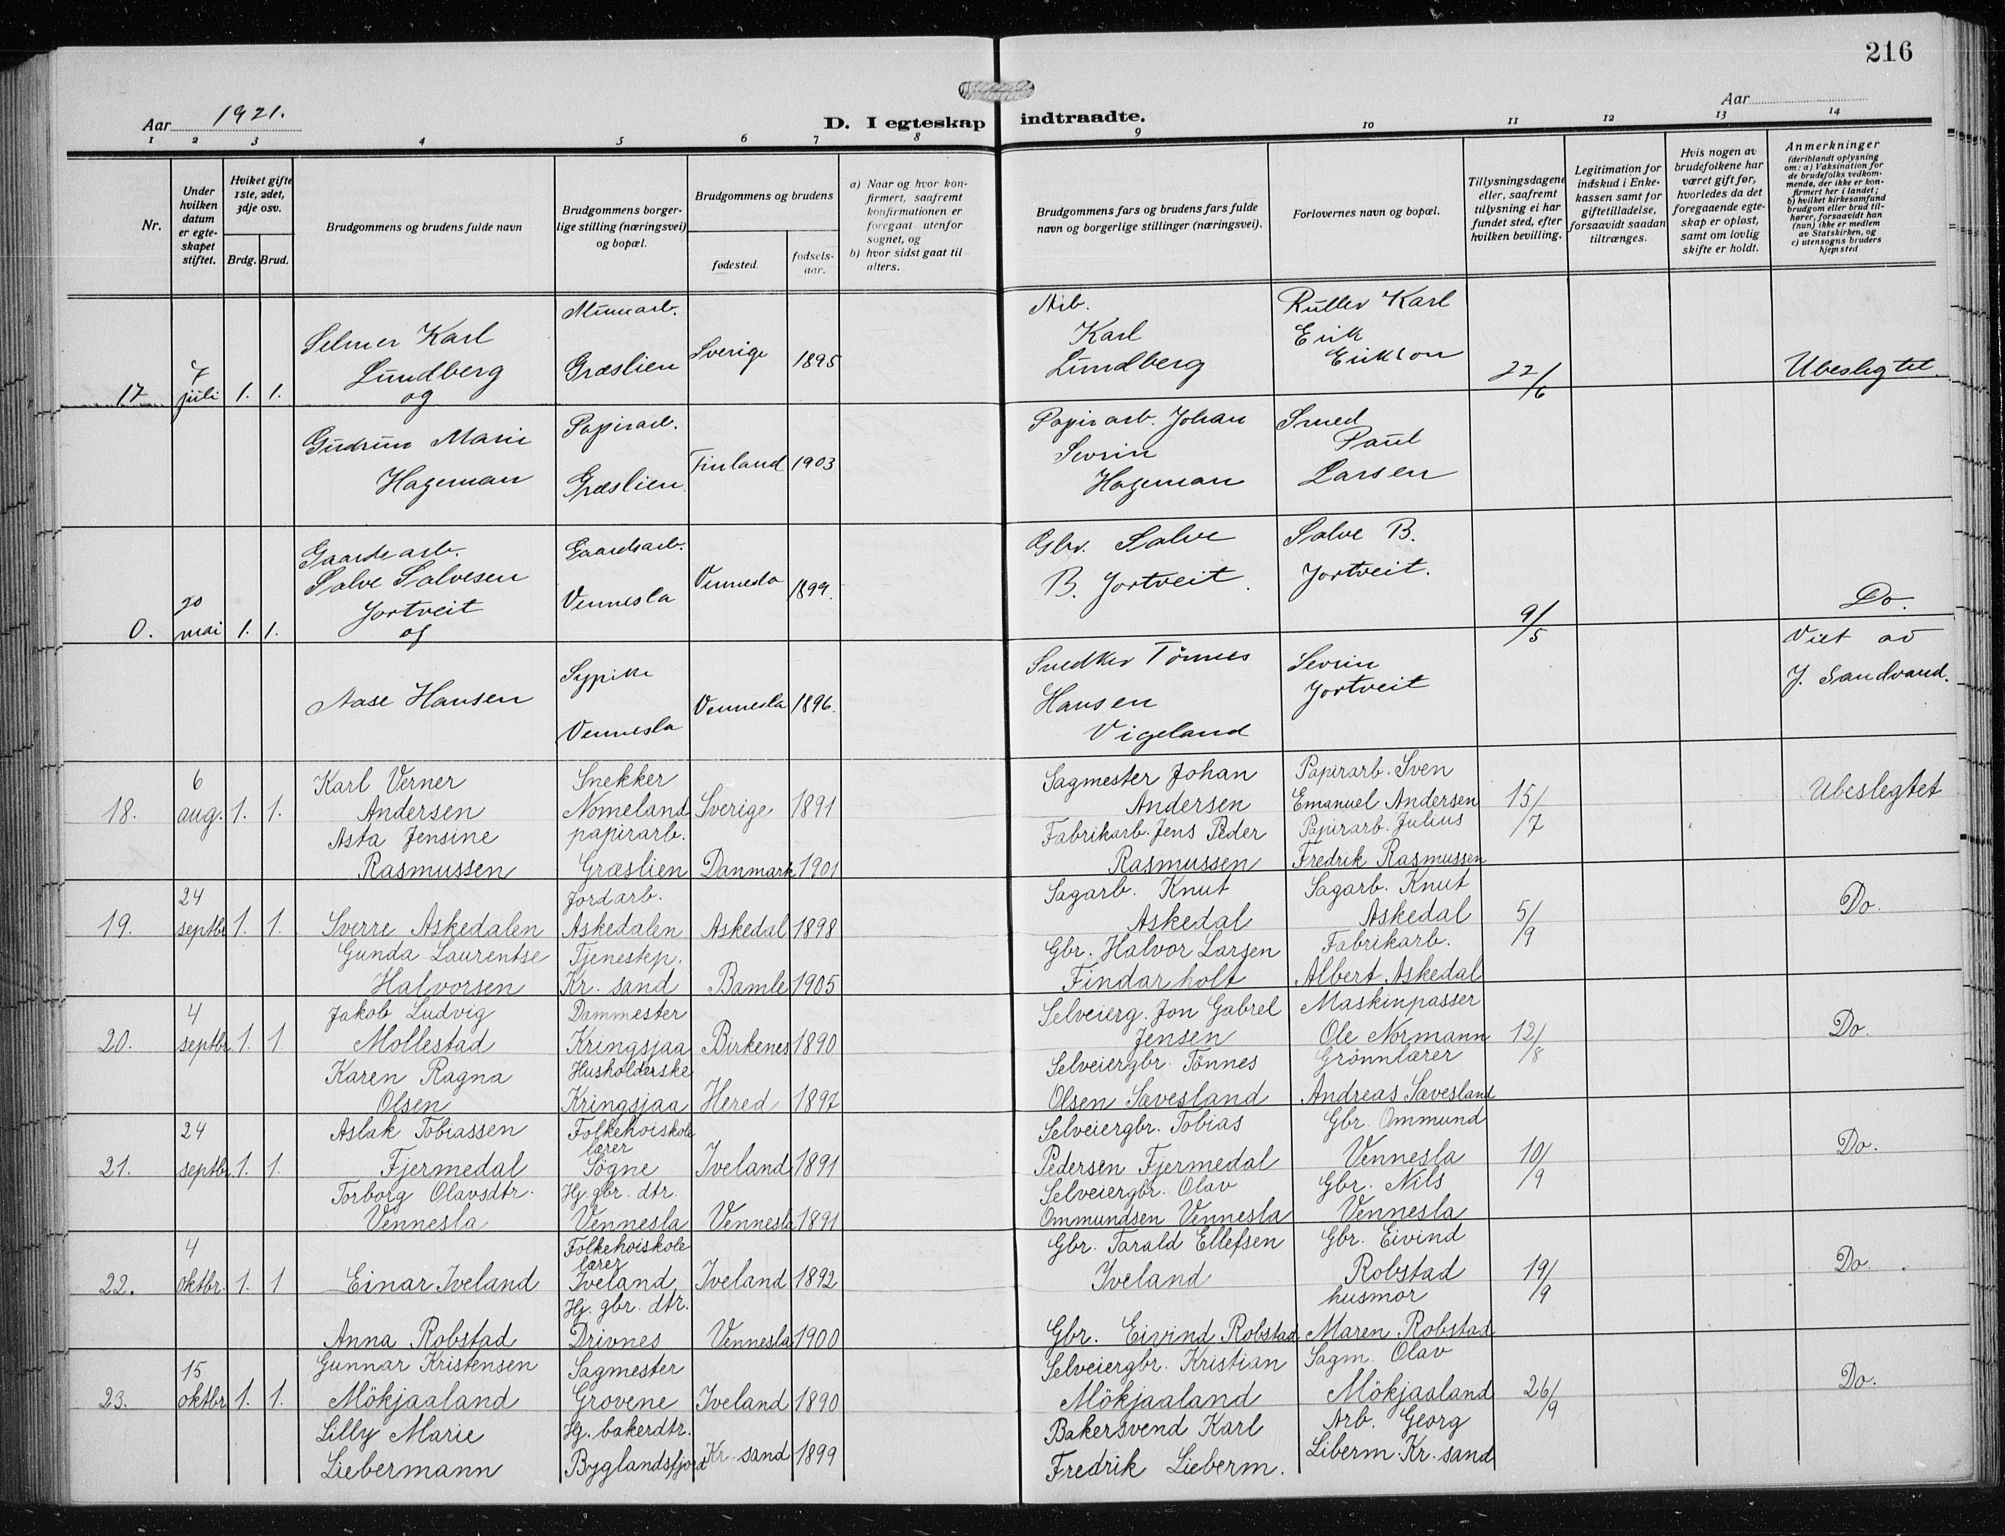 216
Aar 1921.
D. I egteskap indtraadte.
Aar
1 2 3 4 5 6 7 8 9 10 11 12 13 14
Nr.
Under hvilken datum er egte-skapet stiftet.
Hviket gifte 1ste, 2det, 3dje osv.
Brdg. Brud.
Brudgommens og brudens fulde navn
Brudgommens borger-lige stilling (næringsvei) og bopæl.
Brudgommens og brudens
fødested.
fødsels-aar.
a) Naar og hvor kon-firmert, saafremt konfirmationen er foregaat utenfor sognet, og
b) hvor sidst gaat til alters.
Brudgommens fars og brudens fars fulde navn og borgerlige stillinger (næringsvei).
Forlovernes navn og bopæl.
Tillysningsdagene eller, saafremt tillysning ei har fundet sted, efter hvilken bevilling.
Legitimation for indskud i Enke-kassen samt for giftetilladelse, forsaavidt saadan tiltrænges.
Hvis nogen av brudefolkene har været gift før, hvorledes da det foregaaende egte-skap er opløst, samt om lovlig skifte er holdt.
Anmerkninger (deriblandt oplysning om: a) Vaksination for de brudefolks vedkom-mende, der ikke er kon-firmert her i landet; b) hvilket kirkesamfund brudgom eller brud til-hører, forsaavidt han (hun) ikke er medlem av Statskirken, og c) utensogns bruders hjemsted
17 7 juli 1. 1. Selmer Karl Lundberg og Græslien Sverige 1895 Arb. Karl Lundberg Karl Erik Erikson 22/6 Ubeslegtet.
Gudrun Marie Hageman Papirarb. Græslien Finland 1903 Papirarb. Johan Sevrin Hageman Smed Paul Larsen
0. 20 mai 1. 1. Gaardsarb. Salve Salvesen Jortveit og Gaardsarb. Vennesla Vennesla 1899. Gbr. Salve B. Jortveit. Salve B. Jortveit. 9/5 Do.
Aase Hansen Sypike Vennesla Vennesla 1896. Snedker Tønnes Hansen Vigeland Sevrin Jortveit Viet av J. Sandvand.
18. 6 aug. 1. 1. Karl Verner Andersen Snekker Nomeland Sverige 1891 Sagmester Johan Andersen Papirarb. Sven Emanuel Andersen 15/7 Ubeslegtet
Asta Jensine Rasmussen papirarb. Græslien Danmark 1901 Fabrikarb. Jens Peder Rasmussen Papirarb. Julius Fredrik Rasmussen
19. 24 septbr 1. 1. Sverre Askedalen Jordarb. Askedalen Askedal 1898 Sagarb. Knut Askedal Sagarb. Knut Askedal 5/9 Do.
Gunda Laurentse Halvorsen Tjenestep. Kr. sand Bamle 1905 Gbr. Halvor Larsen Findarholt Fabrikarb. Albert Askedal
20. 4 septbr. 1. 1. Jakob Ludvig Mollestad Dammester Kringsjaa Birkenes 1890 Selveierg. Jon Gabrel Jensen Maskinpasser Ole Normann 12/8 Do.
Karen Ragna Olsen Husholderske Kringsjaa Hered 1897 Selveiergbr. Tønnes Olsen Savesland Andreas Savesland
21. 24 septbr. 1. 1. Aslak Tobiassen Fjermedal Folkehøiskole lærer Søgne Iveland 1891 Selveiergbr. Tobias Pedersen Fjermedal Gbr. Ommund Vennesla 10/9 Do.
Torborg Olavsdtr. Vennesla Hj. gbr. dtr. Vennesla Vennesla 1891 Selveiergbr. Olav Ommundsen Vennesla Gbr. Nils Vennesla
22. 4 oktbr. 1. 1 Einar Iveland Folkehøiskole lærer Iveland Iveland 1892 Gbr. Tarald Ellefsen Iveland Gbr. Eivind Robstad 19/9 Do.
Anna Robstad Hj. gbr. dtr. Drivnes Vennesla 1900 Gbr. Eivind Robstad husmor Maren Robstad
23. 15 oktbr 1. 1. Gunnar Kristensen Mökjaaland Sagmester Grovene Iveland 1890 Selveiergbr. Kristian Mökjaaland Sagm. Olav Mökjaaland 26/9 Do.
Lilly Marie Liebermann Hj. bakerdtr. Byglandsfjord Kr. sand 1899 Bakersvend Karl Fredrik Lieberm. Arb. Georg Liberm. Kr. sand